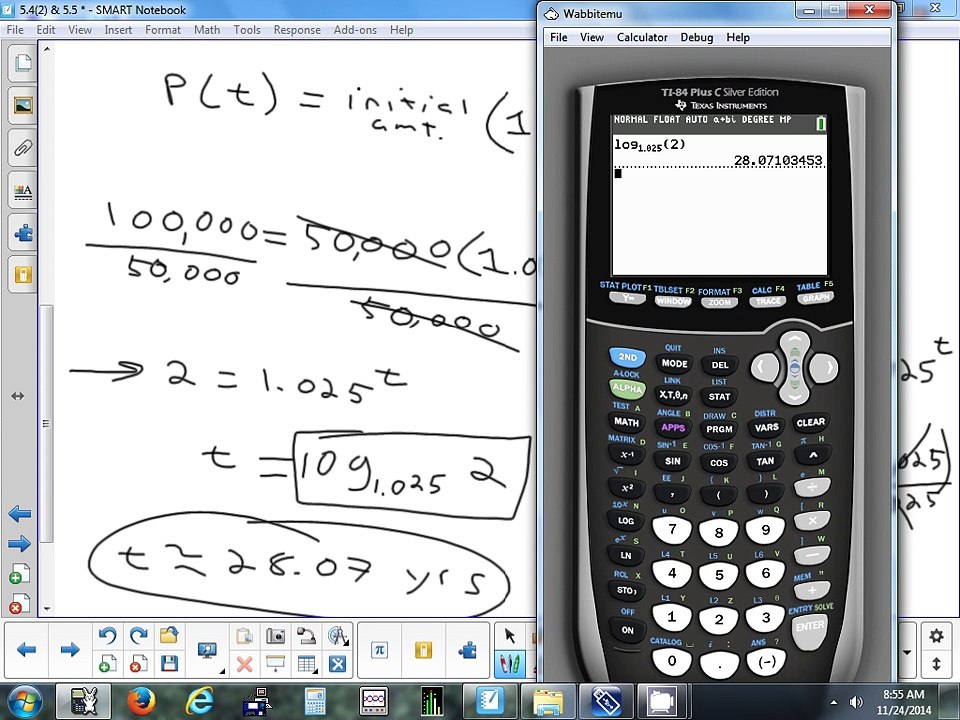 5.4(2) & 5.5 * - SMART Notebook
File Edit View Insert Format Math Tools Response Add-ons Help
P(t) = initial amt. (1
100,000 = 50,000 (1.0
50,000 50,000
→ 2 = 1.025^t
t = log₁.₀₂₅ 2
t ≈ 28.07 yrs
25^t
025)
25
Wabbitemu
File View Calculator Debug Help
TI-84 Plus C Silver Edition
TEXAS INSTRUMENTS
NORMAL FLOAT AUTO a+bi DEGREE MP
log₁.₀₂₅(2)
28.07103453
STAT PLOT F1 TBLSET F2 FORMAT F3 CALC F4 TABLE F5
Y= WINDOW ZOOM TRACE GRAPH
QUIT INS
2ND MODE DEL
A-LOCK LINK LIST
ALPHA X,T,θ,n STAT
TEST A ANGLE B DRAW C DISTR
MATH APPS PRGM VARS CLEAR
MATRIX D SIN⁻¹ E COS⁻¹ F TAN⁻¹ G π H
x⁻¹ SIN COS TAN ^
√ I EE J { K } L e M
x² , ( ) ÷
10ˣ N u O v P w Q [ R
LOG 7 8 9 ×
eˣ S L4 T L5 U L6 V ] W
LN 4 5 6 −
RCL X L1 Y L2 Z L3 θ MEM "
STO› 1 2 3 +
OFF CATALOG i : ANS ? ENTRY SOLVE
ON 0 . (-) ENTER
8:55 AM
11/24/2014